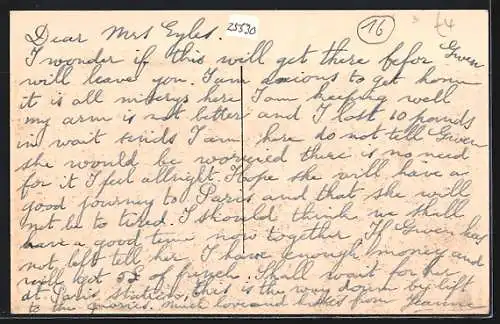 Dear Mrs Eyles. 25530 16 £4
I wonder if this will get there befor Gwen
will leave you. I am axious to get home
it is all miserys here I am keeping well
my arm is not better and I lost 10 pounds
in wait sinds I am here do not tell Gwen
she would be worryed there is no need
for it I feel allright. Hope she will have a
good journey to Paris and that she will
not be to tired. I should think we shall
have a good time now together If Gwen has
not left tell her I have enough money and
will get 5£ of Shall wait for her
at Paris station, this is the way down by lift
to the much love and kisses from Jeanne